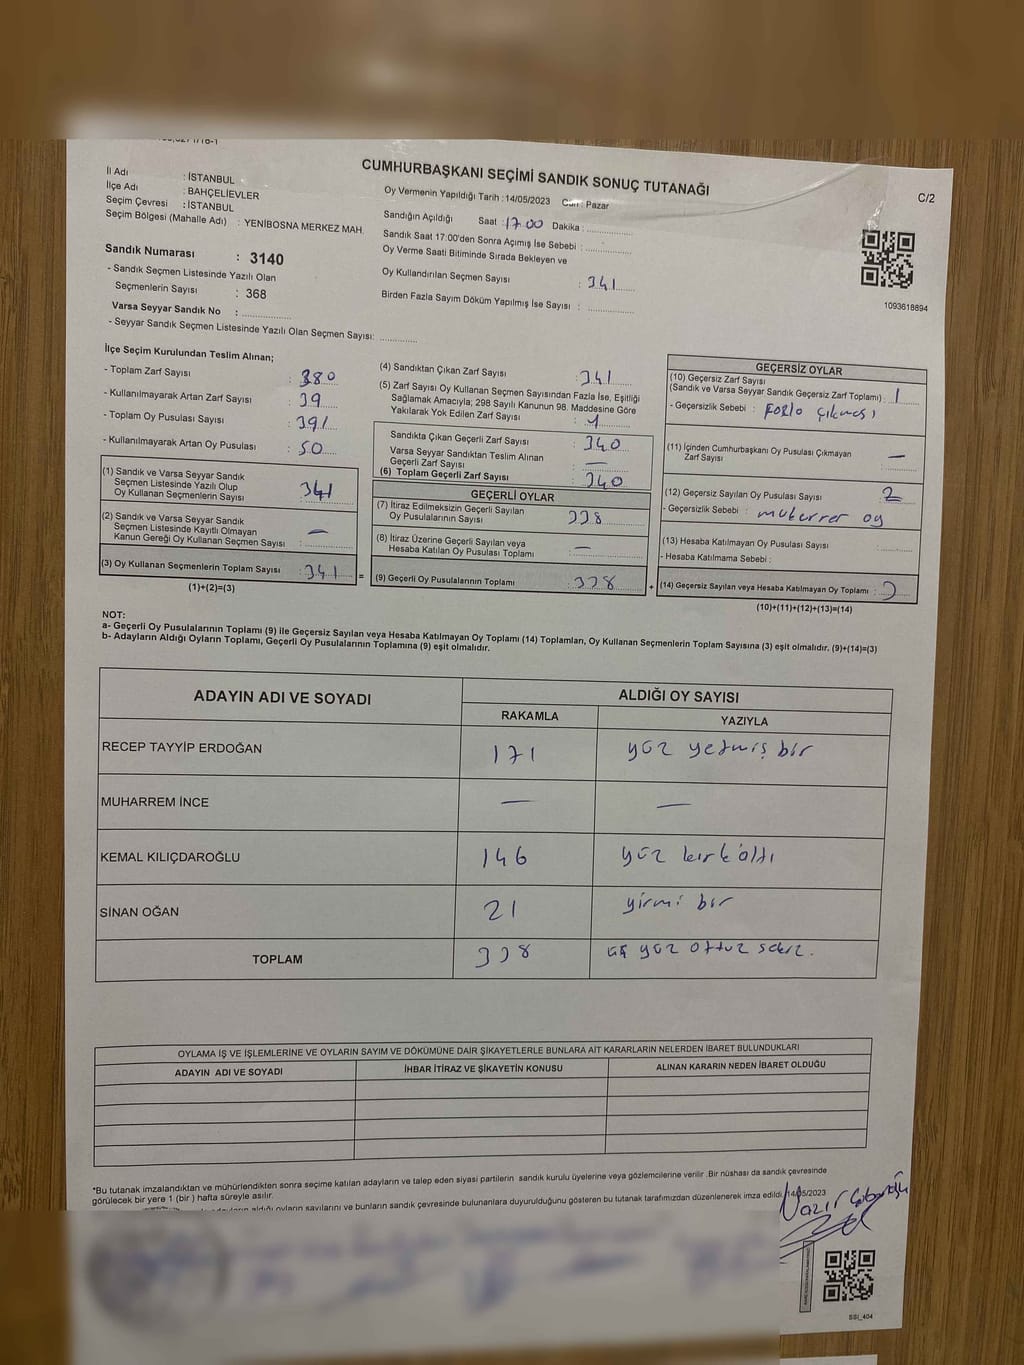 CUMHURBAŞKANI SEÇİMİ SANDIK SONUÇ TUTANAĞI
C/2
İl Adı : İSTANBUL
İlçe Adı : BAHÇELİEVLER
Seçim Çevresi : İSTANBUL
Seçim Bölgesi (Mahalle Adı) : YENİBOSNA MERKEZ MAH.
Sandık Numarası : 3140
- Sandık Seçmen Listesinde Yazılı Olan
Seçmenlerin Sayısı : 368
Varsa Seyyar Sandık No :
- Seyyar Sandık Seçmen Listesinde Yazılı Olan Seçmen Sayısı:
Oy Vermenin Yapıldığı Tarih : 14/05/2023 Gün : Pazar
Sandığın Açıldığı Saat : 17.00 Dakika :
Sandık Saat 17:00'den Sonra Açımış İse Sebebi :
Oy Verme Saati Bitiminde Sırada Bekleyen ve
Oy Kullandırılan Seçmen Sayısı : 341
Birden Fazla Sayım Döküm Yapılmış İse Sayısı :
1093618894
İlçe Seçim Kurulundan Teslim Alınan;
- Toplam Zarf Sayısı : 380
- Kullanılmayarak Artan Zarf Sayısı : 39
- Toplam Oy Pusulası Sayısı : 391
- Kullanılmayarak Artan Oy Pusulası : 50
(1) Sandık ve Varsa Seyyar Sandık
Seçmen Listesinde Yazılı Olup
Oy Kullanan Seçmenlerin Sayısı : 341
(2) Sandık ve Varsa Seyyar Sandık
Seçmen Listesinde Kayıtlı Olmayan
Kanun Gereği Oy Kullanan Seçmen Sayısı : —
(3) Oy Kullanan Seçmenlerin Toplam Sayısı : 341 =
(1)+(2)=(3)
(4) Sandıktan Çıkan Zarf Sayısı : 341
(5) Zarf Sayısı Oy Kullanan Seçmen Sayısından Fazla İse, Eşitliği
Sağlamak Amacıyla; 298 Sayılı Kanunun 98. Maddesine Göre
Yakılarak Yok Edilen Zarf Sayısı :
Sandıkta Çıkan Geçerli Zarf Sayısı : 340
Varsa Seyyar Sandıktan Teslim Alınan
Geçerli Zarf Sayısı : —
(6) Toplam Geçerli Zarf Sayısı : 340
GEÇERLİ OYLAR
(7) İtiraz Edilmeksizin Geçerli Sayılan
Oy Pusulalarının Sayısı : 338
(8) İtiraz Üzerine Geçerli Sayılan veya
Hesaba Katılan Oy Pusulası Toplamı : —
(9) Geçerli Oy Pusulalarının Toplamı : 338 +
GEÇERSİZ OYLAR
(10) Geçersiz Zarf Sayısı
(Sandık ve Varsa Seyyar Sandık Geçersiz Zarf Toplamı) : 1
- Geçersizlik Sebebi : Fazla çıkması
(11) İçinden Cumhurbaşkanı Oy Pusulası Çıkmayan
Zarf Sayısı : —
(12) Geçersiz Sayılan Oy Pusulası Sayısı : 2
- Geçersizlik Sebebi : mükerrer oy
(13) Hesaba Katılmayan Oy Pusulası Sayısı :
- Hesaba Katılmama Sebebi :
(14) Geçersiz Sayılan veya Hesaba Katılmayan Oy Toplamı : 3
(10)+(11)+(12)+(13)=(14)
NOT:
a- Geçerli Oy Pusulalarının Toplamı (9) ile Geçersiz Sayılan veya Hesaba Katılmayan Oy Toplamı (14) Toplamları, Oy Kullanan Seçmenlerin Toplam Sayısına (3) eşit olmalıdır. (9)+(14)=(3)
b- Adayların Aldığı Oyların Toplamı, Geçerli Oy Pusulalarının Toplamına (9) eşit olmalıdır.
ADAYIN ADI VE SOYADI ALDIĞI OY SAYISI
RAKAMLA YAZIYLA
RECEP TAYYİP ERDOĞAN 171 yüz yetmiş bir
MUHARREM İNCE — —
KEMAL KILIÇDAROĞLU 146 yüz kırk altı
SİNAN OĞAN 21 yirmi bir
TOPLAM 338 üç yüz otuz sekiz.
OYLAMA İŞ VE İŞLEMLERİNE VE OYLARIN SAYIM VE DÖKÜMÜNE DAİR ŞİKAYETLERLE BUNLARA AİT KARARLARIN NELERDEN İBARET BULUNDUKLARI
ADAYIN ADI VE SOYADI İHBAR İTİRAZ VE ŞİKAYETİN KONUSU ALINAN KARARIN NEDEN İBARET OLDUĞU
*Bu tutanak imzalandıktan ve mühürlendikten sonra seçime katılan adayların ve talep eden siyasi partilerin sandık kurulu üyelerine veya gözlemcilerine verilir .Bir nüshası da sandık çevresinde
görülecek bir yere 1 (bir ) hafta süreyle asılır.
aldığı oyların sayılarını ve bunların sandık çevresinde bulunanlara duyurulduğunu gösteren bu tutanak tarafımızdan düzenlenerek imza edildi. 14/05/2023
SSI_404